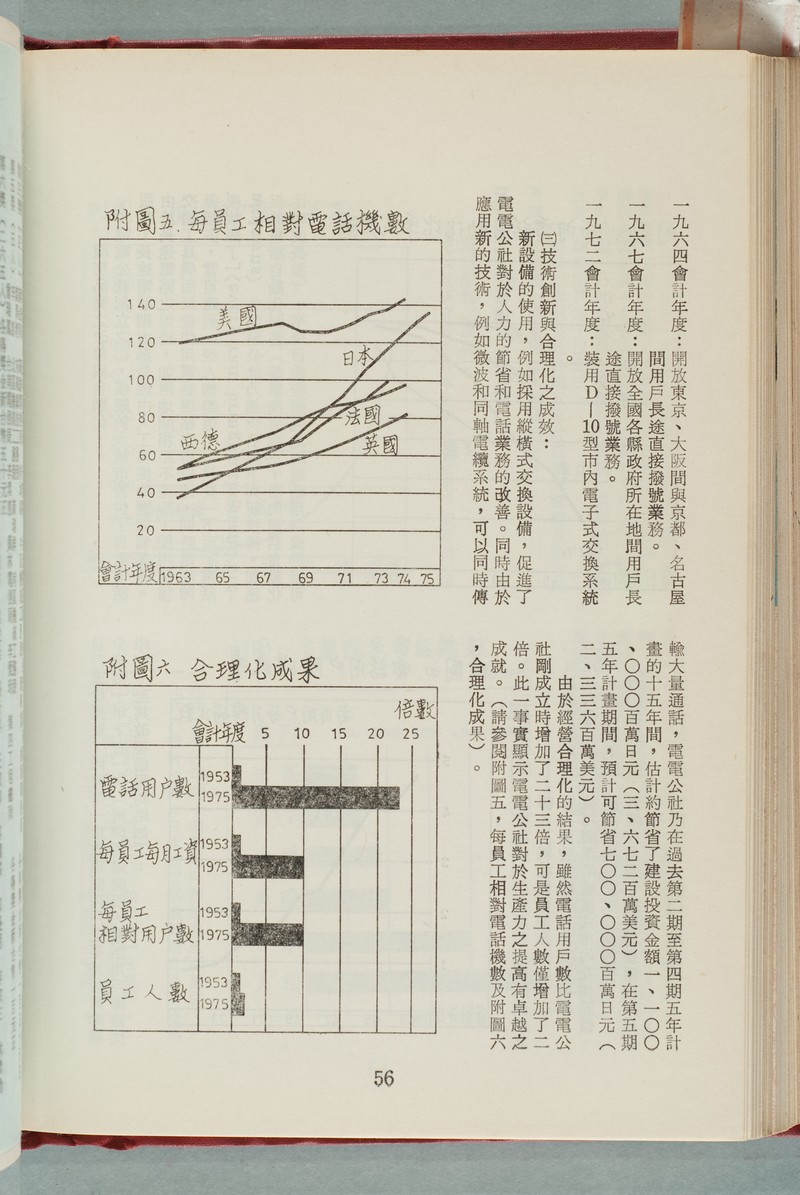 一九六四會計年度：開放東京、大阪間與京都、名古屋
間用戶長途直接撥號業務。
一九六七會計年度：開放全國各縣政府所在地間用戶長
途直接撥號業務。
一九七二會計年度：裝用D—10型市內電子式交換系統
。
㈢技術創新與合理化之成效：
新設備的使用，例如採用縱橫式交換設備，促進了
電電公社對於人力的節省和電話業務的改善。同時由於
應用新的技術，例如微波和同軸電纜系統，可以同時傳
輸大量通話，電電公社乃在過去第二期至第四期五年計
畫的十五年間，估計約節省了建設投資金額一、一〇〇
、〇〇〇百萬日元（三、六七二百萬美元），在第五期
五年計畫期間，預計可節省七〇〇、〇〇〇百萬日元（
二、三三六百萬美元）。
由於經營合理化的結果，雖然電話用戶數比電電公
社剛成立時增加了二十三倍，可是員工人數僅增加了二
倍。此一事實顯示電電公社對於生產力之提高有卓越之
成就。（請參閱附圖五，每員工相對電話機數及附圖六
，合理化成果）。
附圖五.每員工相對電話機數
140
120
100
80
60
40
20
美國
日本
法國
英國
西德
會計年度 1963 65 67 69 71 73 74 75
附圖六 合理化成果
倍數
會計年度 5 10 15 20 25
電話用戶數 1953
1975
每員工每月工資 1953
1975
每員工
相對用戶數 1953
1975
員工人數 1953
1975
56